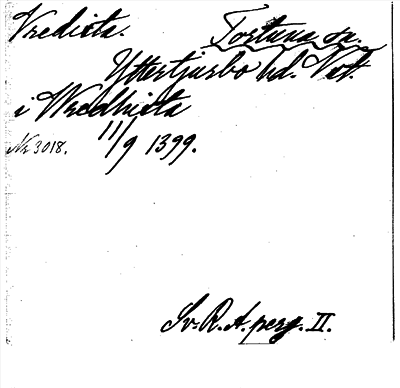 Vredsta. Tortuna sn.
Yttertjurbo hd. Vstm.
i Wredhista
Nr 3018. 11/9 1399.
Sv. R. A. perg. II.